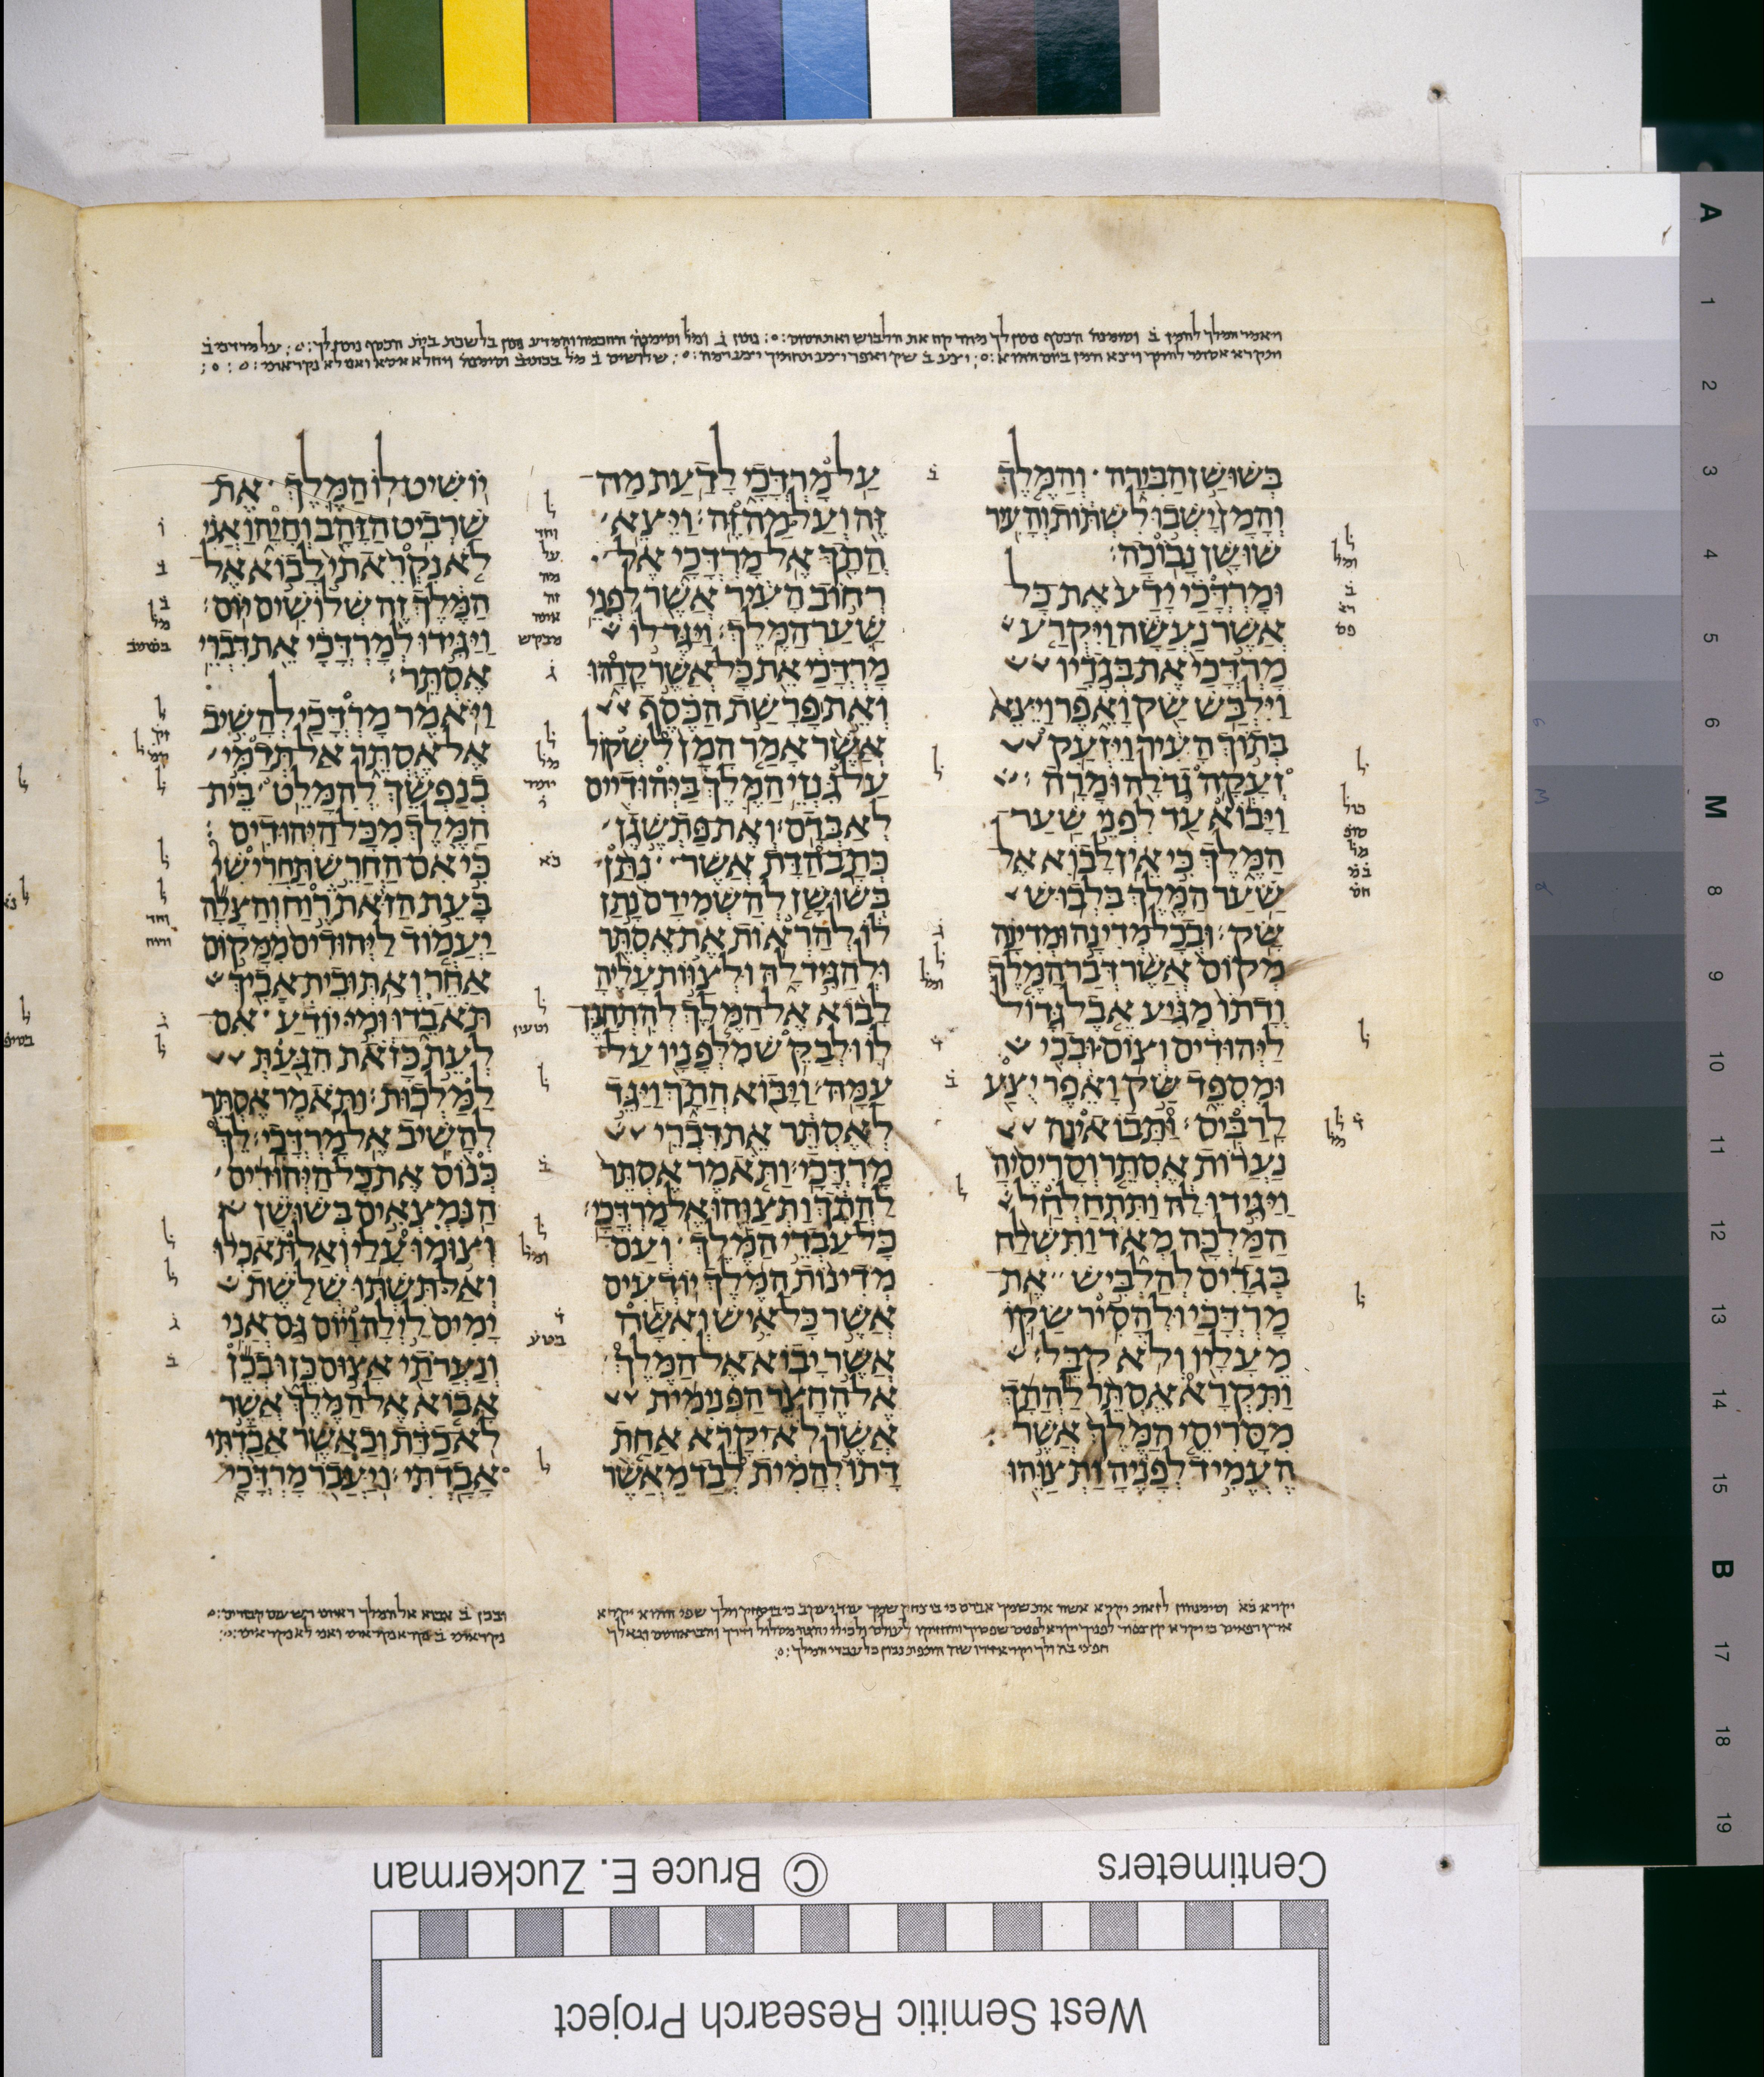 ויאמר המלך להמן ב וסימנה הכסף נתון לך מהר קח את הלבוש ואת הסוס נתון ב ומל וסימנה החכמה והמדע נתון בלשכת בית הכסף נתון לך על מרדכי ב
ותקרא אסתר להתך ויצא המן ביום ההוא יצע ב שק ואפר יצע ותחתיך יצע רמה שלושים ב מל
בְּשׁוּשַׁן הַבִּירָה וְהַמֶּלֶךְ
וְהָמָן יָשְׁבוּ לִשְׁתּוֹת וְהָעִיר
שׁוּשָׁן נָבוֹכָה׃
וּמָרְדֳּכַי יָדַע אֶת כָּל
אֲשֶׁר נַעֲשָׂה וַיִּקְרַע
מָרְדֳּכַי אֶת בְּגָדָיו
וַיִּלְבַּשׁ שַׂק וָאֵפֶר וַיֵּצֵא
בְּתוֹךְ הָעִיר וַיִּזְעַק
זְעָקָה גְדֹלָה וּמָרָה׃
וַיָּבוֹא עַד לִפְנֵי שַׁעַר
הַמֶּלֶךְ כִּי אֵין לָבוֹא אֶל
שַׁעַר הַמֶּלֶךְ בִּלְבוּשׁ
שָׂק׃ וּבְכָל מְדִינָה וּמְדִינָה
מְקוֹם אֲשֶׁר דְּבַר הַמֶּלֶךְ
וְדָתוֹ מַגִּיעַ אֵבֶל גָּדוֹל
לַיְּהוּדִים וְצוֹם וּבְכִי
וּמִסְפֵּד שַׂק וָאֵפֶר יֻצַּע
לָרַבִּים׃ וַתָּבוֹאינָה
נַעֲרוֹת אֶסְתֵּר וְסָרִיסֶיהָ
וַיַּגִּידוּ לָהּ וַתִּתְחַלְחַל
הַמַּלְכָּה מְאֹד וַתִּשְׁלַח
בְּגָדִים לְהַלְבִּישׁ אֶת
מָרְדֳּכַי וּלְהָסִיר שַׂקּוֹ
מֵעָלָיו וְלֹא קִבֵּל׃
וַתִּקְרָא אֶסְתֵּר לַהֲתָךְ
מִסָּרִיסֵי הַמֶּלֶךְ אֲשֶׁר
הֶעֱמִיד לְפָנֶיהָ וַתְּצַוֵּהוּ
עַל מָרְדֳּכָי לָדַעַת מַה
זֶּה וְעַל מַה זֶּה׃ וַיֵּצֵא
הֲתָךְ אֶל מָרְדֳּכָי אֶל
רְחוֹב הָעִיר אֲשֶׁר לִפְנֵי
שַׁעַר הַמֶּלֶךְ׃ וַיַּגֶּד לוֹ
מָרְדֳּכַי אֵת כָּל אֲשֶׁר קָרָהוּ
וְאֵת פָּרָשַׁת הַכֶּסֶף
אֲשֶׁר אָמַר הָמָן לִשְׁקוֹל
עַל גִּנְזֵי הַמֶּלֶךְ בַּיְּהוּדִיים
לְאַבְּדָם׃ וְאֶת פַּתְשֶׁגֶן
כְּתָב הַדָּת אֲשֶׁר נִתַּן
בְּשׁוּשָׁן לְהַשְׁמִידָם נָתַן
לוֹ לְהַרְאוֹת אֶת אֶסְתֵּר
וּלְהַגִּיד לָהּ וּלְצַוּוֹת עָלֶיהָ
לָבוֹא אֶל הַמֶּלֶךְ לְהִתְחַנֶּן
לוֹ וּלְבַקֵּשׁ מִלְּפָנָיו עַל
עַמָּהּ׃ וַיָּבוֹא הֲתָךְ וַיַּגֵּד
לְאֶסְתֵּר אֵת דִּבְרֵי
מָרְדֳּכָי׃ וַתֹּאמֶר אֶסְתֵּר
לַהֲתָךְ וַתְּצַוֵּהוּ אֶל מָרְדֳּכָי׃
כָּל עַבְדֵי הַמֶּלֶךְ וְעַם
מְדִינוֹת הַמֶּלֶךְ יוֹדְעִים
אֲשֶׁר כָּל אִישׁ וְאִשָּׁה
אֲשֶׁר יָבוֹא אֶל הַמֶּלֶךְ
אֶל הֶחָצֵר הַפְּנִימִית
אֲשֶׁר לֹא יִקָּרֵא אַחַת
דָּתוֹ לְהָמִית לְבַד מֵאֲשֶׁר
יוֹשִׁיט לוֹ הַמֶּלֶךְ אֶת
שַׁרְבִיט הַזָּהָב וְחָיָה וַאֲנִי
לֹא נִקְרֵאתִי לָבוֹא אֶל
הַמֶּלֶךְ זֶה שְׁלוֹשִׁים יוֹם׃
וַיַּגִּידוּ לְמָרְדֳּכָי אֵת דִּבְרֵי
אֶסְתֵּר׃
וַיֹּאמֶר מָרְדֳּכַי לְהָשִׁיב
אֶל אֶסְתֵּר אַל תְּדַמִּי
בְנַפְשֵׁךְ לְהִמָּלֵט בֵּית
הַמֶּלֶךְ מִכָּל הַיְּהוּדִים׃
כִּי אִם הַחֲרֵשׁ תַּחֲרִישִׁי
בָּעֵת הַזֹּאת רֶוַח וְהַצָּלָה
יַעֲמוֹד לַיְּהוּדִים מִמָּקוֹם
אַחֵר וְאַתְּ וּבֵית אָבִיךְ
תֹּאבֵדוּ וּמִי יוֹדֵעַ אִם
לְעֵת כָּזֹאת הִגַּעַתְּ
לַמַּלְכוּת׃ וַתֹּאמֶר אֶסְתֵּר
לְהָשִׁיב אֶל מָרְדֳּכָי׃ לֵךְ
כְּנוֹס אֶת כָּל הַיְּהוּדִים
הַנִּמְצְאִים בְּשׁוּשָׁן
וְצוּמוּ עָלַי וְאַל תֹּאכְלוּ
וְאַל תִּשְׁתּוּ שְׁלֹשֶׁת
יָמִים לַיְלָה וָיוֹם גַּם אֲנִי
וְנַעֲרֹתַי אָצוּם כֵּן וּבְכֵן
אָבוֹא אֶל הַמֶּלֶךְ אֲשֶׁר
לֹא כַדָּת וְכַאֲשֶׁר אָבַדְתִּי
אָבָדְתִּי׃ וַיַּעֲבֹר מָרְדֳּכָי
ובכן ב אבוא אל המלך
Centimeters
© Bruce E. Zuckerman
West Semitic Research Project
A
1
2
3
4
5
6
M
8
9
10
11
12
13
14
15
B
17
18
19